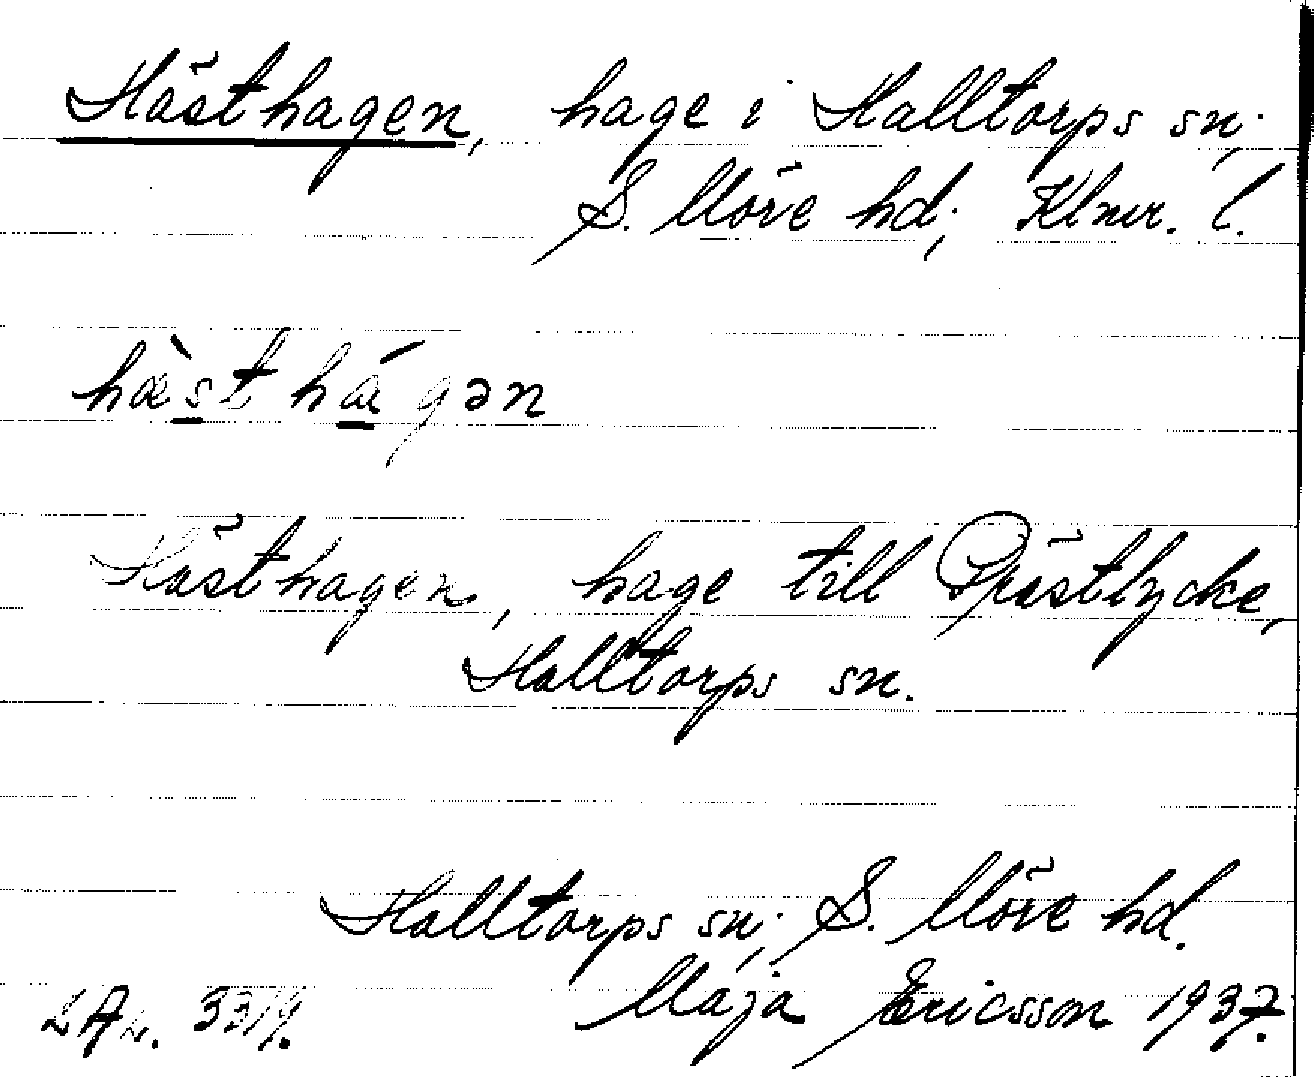 Hästhagen, hage i Halltorps sn;
S. Möre hd; Klmr. l.
hæ̀sthágən
Hästhagen, hage till Prästlycke,
Halltorps sn.
Halltorps sn; S. Möre hd.
LAL. 3319. Maja Ericsson 1937.